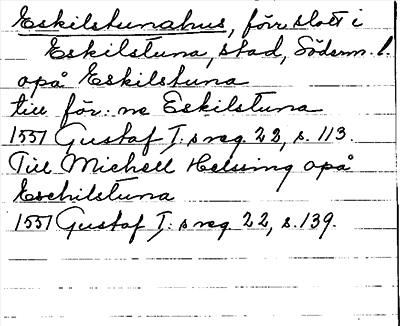 Eskilstunahus, förr slott i
Eskilstuna, stad, Söderm. l.
opå Eskilstuna
till för:ne Eskilstuna
1551 Gustaf I:s reg. 22, s. 113.
Till Michell Helsing opå
Eschilstuna
1551 Gustaf I:s reg. 22, s. 139.